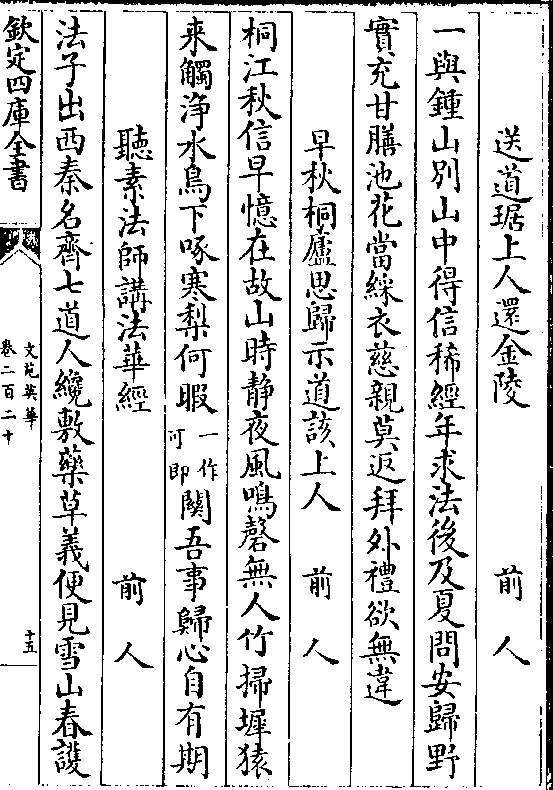 送道琚上人還金陵　前人
一與鍾山别山中得信稀經年求法後及夏問安歸野
實充甘膳池花當綵衣慈親莫返拜外禮欲無違
早秋桐廬思歸示道該上人　前人
桐江秋信早憶在故山時静夜風鳴磬無人竹掃墀猿
来觸浄水鳥下啄寒梨何暇一作可即關吾事歸心自有期
聽素法師講法華經　前人
法子出西秦名齊七道人纔敷藥草義便見雪山春護
欽定四庫全書
文苑英華
卷二百二十
十五